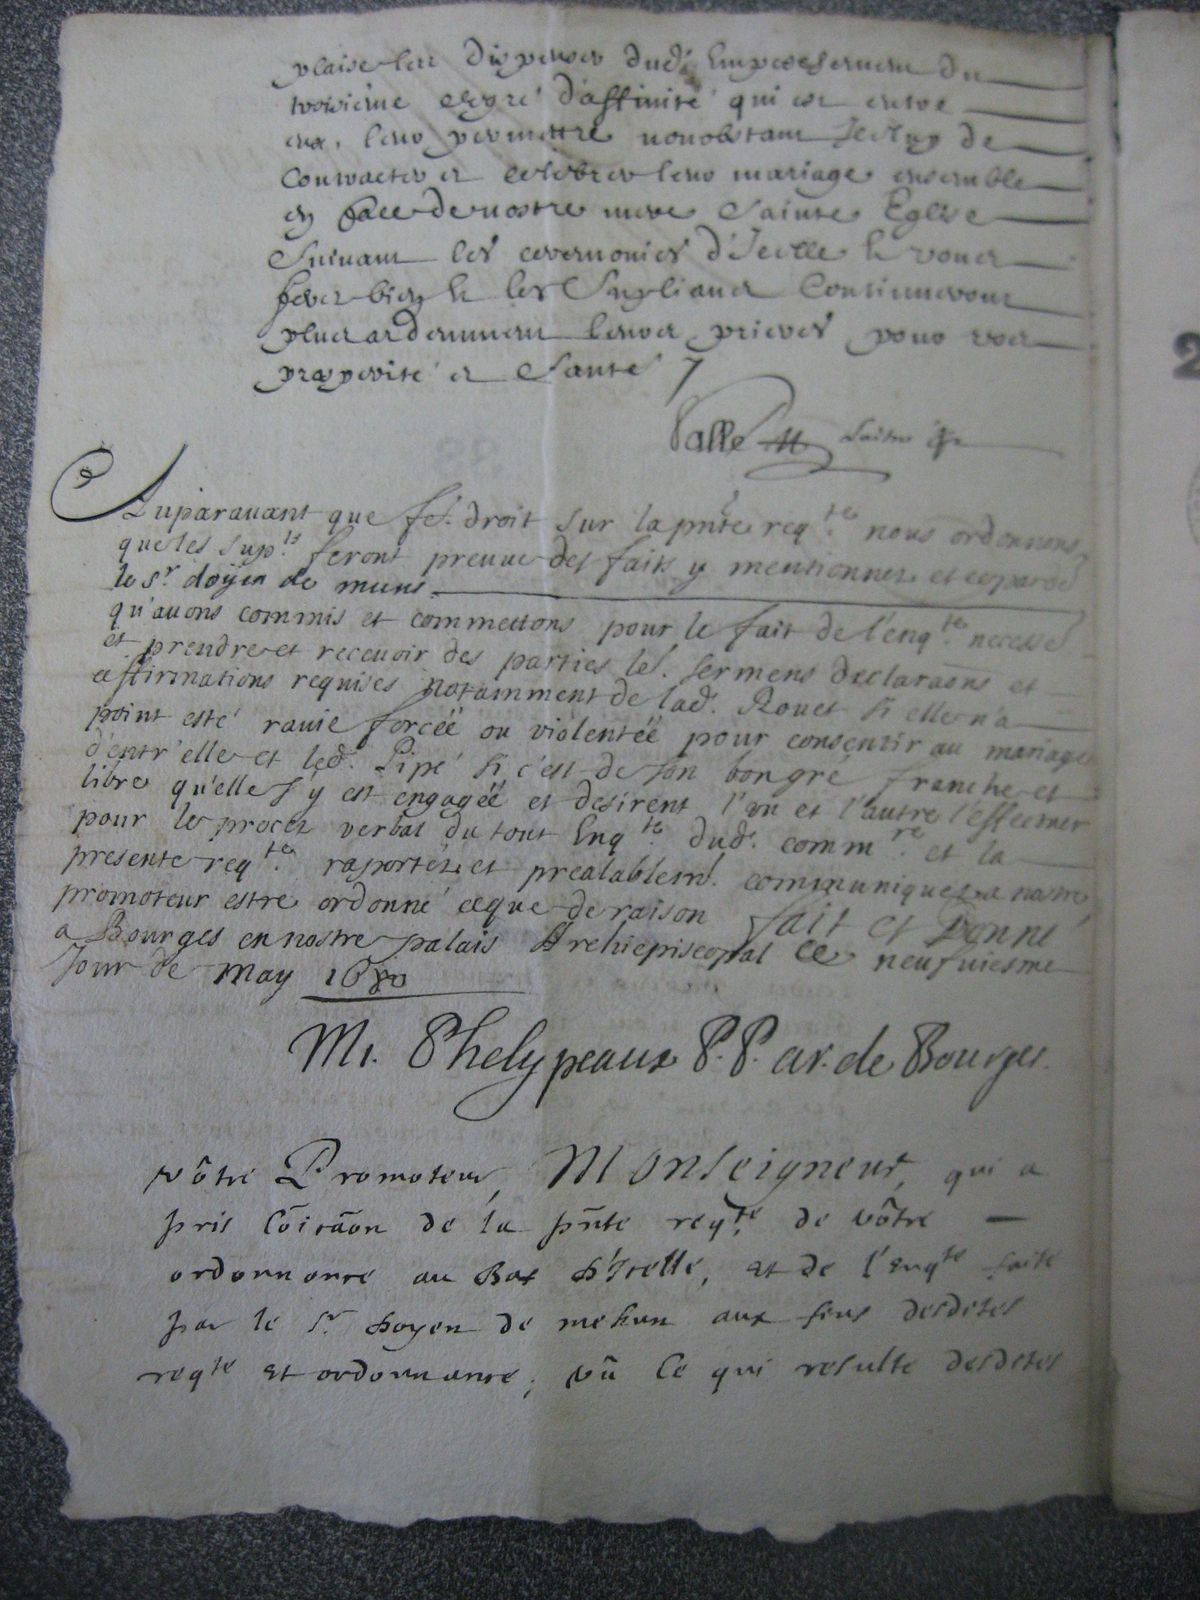 plaise les dispenser dud. Empeschement du
troisieme degré d'affinité qui est entre
eux, leur permettre nonobstant Icelluy de
Contracter et celebrer leur mariage ensemble
en face de nostre mere Sainte Eglise
Suivant les ceremonies d'Icelle le vous
ferez bien et les Suppliants Continueront
plus ardemment leurs prieres pour vostre
prosperité et Santé
Auparavant que fe. droit sur la pñte reqte. nous ordonnons
que les supts. feront preuve des faits y mentionnez et ce parde
le sr. doyen de meun
qu'avons commis et commettons pour le fait de l'enqte. necesse
et prendre et recevoir des parties les. sermens declaraõns et
affirmations requises notamment de lad. Rouet si elle n'a
point esté ravie forcëë ou violentëë pour consentir au mariage
d'entr'elle et led. Pipé si c'est de son bon gré franche et
libre qu'elle s'y est engagëë et desirent l'un et l'autre l'effectuer
pour le procez verbal du tout Enqte. dud. commre. et la
presente reqte. raportéz et prealablemt. communiquez a nostre
promoteur estre ordonné ce que de raison fait et Donné
a Bourges en nostre palais Archiepiscopal ce neufviesme
Jour de may 1680
Mi. Phelypeaux P. P. ar. de Bourges.
vôtre Promoteur, Monseigneur, qui a
pris cõicãon de la pñte reqte. de vôtre
ordonnance au Bas d'Icelle, et de l'enqte faite
par le sr. doyen de mehun aux fins desdites
reqte et ordonnance; vû ce qui resulte desdites